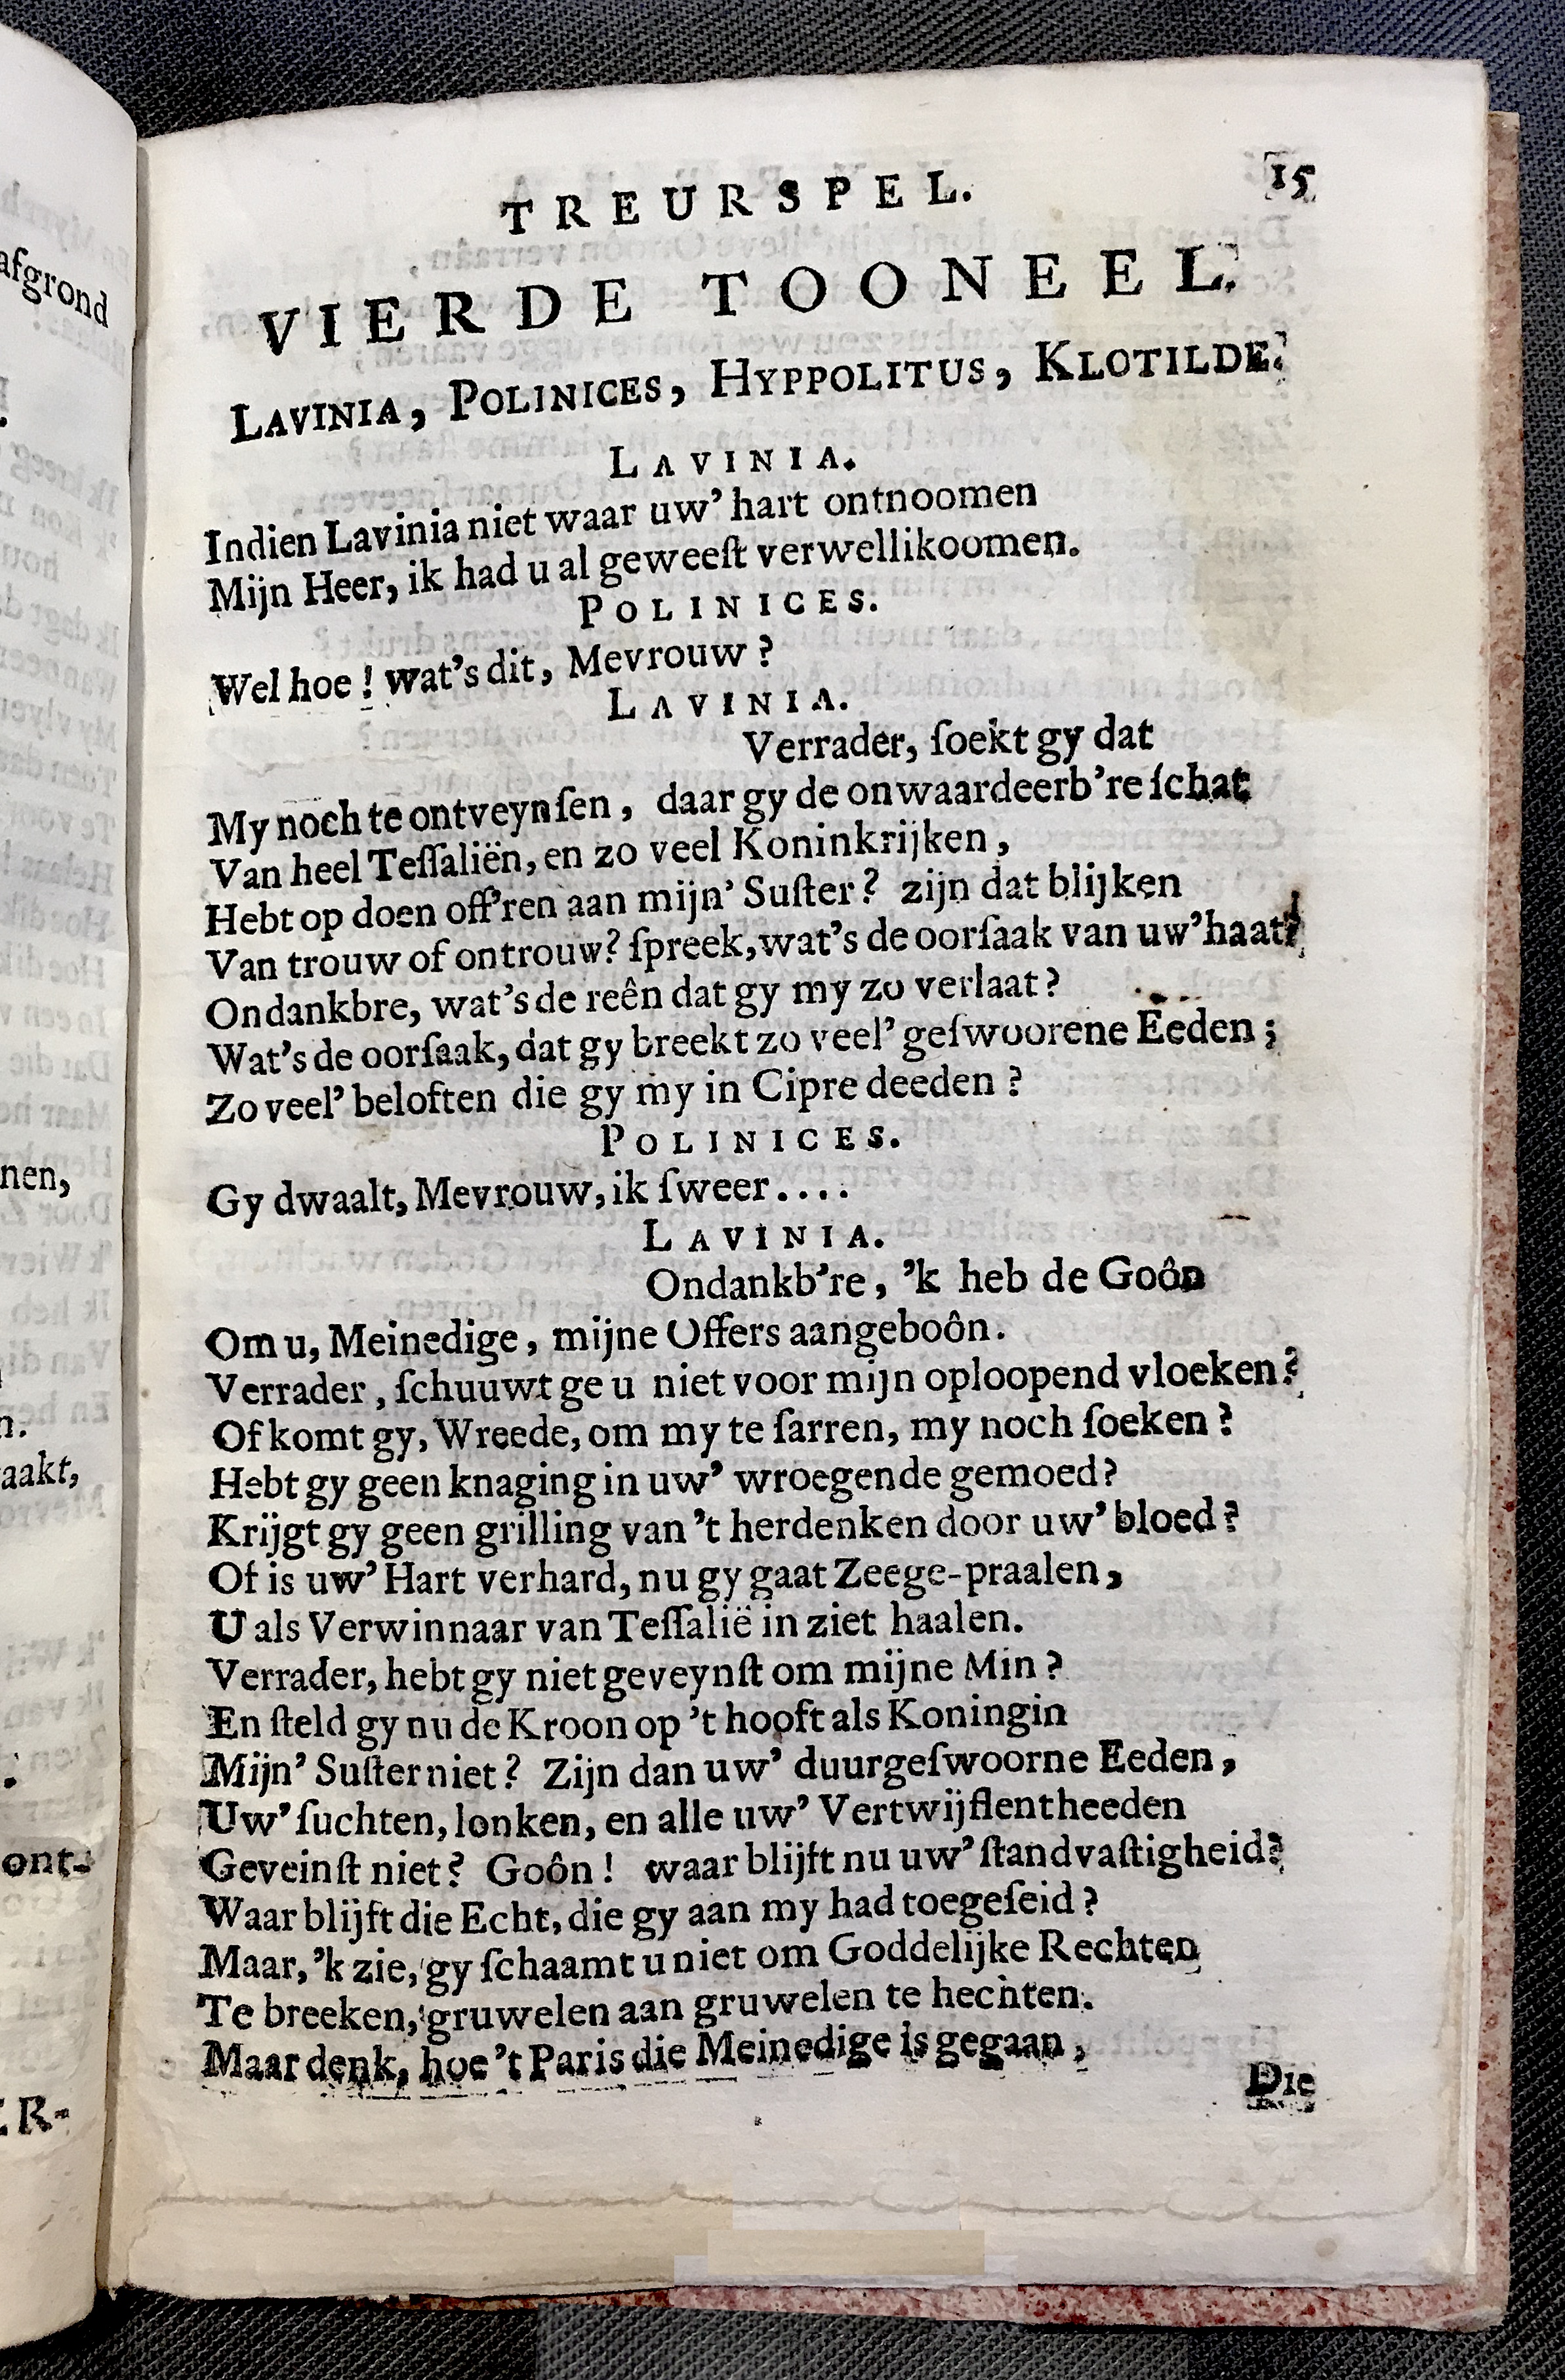 TREURSPEL. 15
VIERDE TOONEEL.
LAVINIA, POLINICES, HYPPOLITUS, KLOTILDE.
LAVINIA.
Indien Lavinia niet waar uw’ hart ontnoomen
Mijn Heer, ik had u al geweeſt verwellikoomen.
POLINICES.
Wel hoe! wat’s dit, Mevrouw?
LAVINIA.
Verrader, ſoekt gy dat
My noch te ontveynſen, daar gy de onwaardeerb’re ſchat
Van heel Teſſaliën, en zo veel Koninkrijken,
Hebt op doen off’ren aan mijn’ Suſter? zijn dat blijken
Van trouw of ontrouw? ſpreek, wat’s de oorſaak van uw’ haat?
Ondankbre, wat’s de reên dat gy my zo verlaat?
Wat’s de oorſaak, dat gy breekt zo veel’ geſwoorene Eeden;
Zo veel’ beloften die gy my in Cipre deeden?
POLINICES.
Gy dwaalt, Mevrouw, ik ſweer....
LAVINIA.
Ondankb’re, ’k heb de Goôn
Om u, Meinedige, mijne Offers aangeboôn.
Verrader, ſchuuwt ge u niet voor mijn oploopend vloeken?
Of komt gy, Wreede, om my te ſarren, my noch ſoeken?
Hebt gy geen knaging in uw’ wroegende gemoed?
Krijgt gy geen grilling van ’t herdenken door uw’ bloed?
Of is uw’ Hart verhard, nu gy gaat Zeege-praalen,
U als Verwinnaar van Teſſalië in ziet haalen.
Verrader, hebt gy niet geveynſt om mijne Min?
En ſteld gy nu de Kroon op ’t hooft als Koningin
Mijn’ Suſter niet? Zijn dan uw’ duurgeſwoorne Eeden,
Uw’ ſuchten, lonken, en alle uw’ Vertwijflentheeden
Geveinſt niet? Goôn! waar blijft nu uw’ ſtandvaſtigheid?
Waar blijft die Echt, die gy aan my had toegeſeid?
Maar, ’k zie, gy ſchaamt u niet om Goddelijke Rechten
Te breeken, gruwelen aan gruwelen te hechten.
Maar denk, hoe ’t Paris die Meinedige is gegaan,
Die
afgrond
nen,
aakt,
ont-